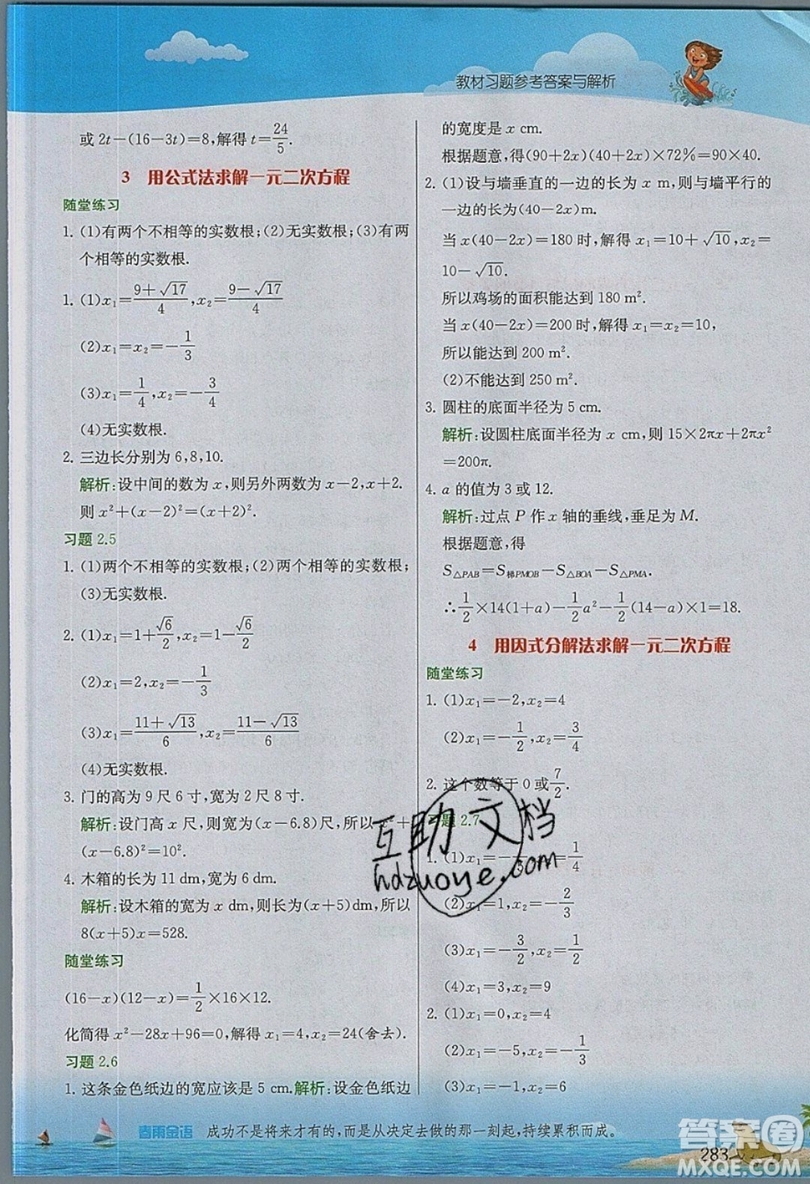 教材习题参考答案与解析
或 2t-(16-3t)=8,解得 t=24/5.
3 用公式法求解一元二次方程
随堂练习
1. (1)有两个不相等的实数根;(2)无实数根;(3)有两
个相等的实数根.
1. (1)x₁=(9+√17)/4,x₂=(9-√17)/4
(2)x₁=x₂=-1/3
(3)x₁=1/4,x₂=-3/4
(4)无实数根.
2. 三边长分别为 6,8,10.
解析:设中间的数为 x,则另外两数为 x-2,x+2.
则 x²+(x-2)²=(x+2)².
习题 2.5
1. (1)两个不相等的实数根;(2)两个相等的实数根;
(3)无实数根.
2. (1)x₁=1+√6/2,x₂=1-√6/2
(2)x₁=x₂=-1/3
(3)x₁=(11+√13)/6,x₂=(11-√13)/6
(4)无实数根.
3. 门的高为 9 尺 6 寸,宽为 2 尺 8 寸.
解析:设门高 x 尺,则宽为(x-6.8)尺,所以 x²+
(x-6.8)²=10².
4. 木箱的长为 11 dm,宽为 6 dm.
解析:设木箱的宽为 x dm,则长为(x+5)dm,所以
8(x+5)x=528.
随堂练习
(16-x)(12-x)=1/2×16×12.
化简得 x²-28x+96=0,解得 x₁=4,x₂=24(舍去).
习题 2.6
1. 这条金色纸边的宽应该是 5 cm.解析:设金色纸边
的宽度是 x cm.
根据题意,得(90+2x)(40+2x)×72%=90×40.
2. (1)设与墙垂直的一边的长为 x m,则与墙平行的
一边的长为(40-2x)m.
当 x(40-2x)=180 时,解得 x₁=10+√10,x₂=
10-√10.
所以鸡场的面积能达到 180 m².
当 x(40-2x)=200 时,解得 x₁=x₂=10,
所以能达到 200 m².
(2)不能达到 250 m².
3. 圆柱的底面半径为 5 cm.
解析:设圆柱底面半径为 x cm,则 15×2πx+2πx²
=200π.
4. a 的值为 3 或 12.
解析:过点 P 作 x 轴的垂线,垂足为 M.
根据题意,得
S△PAB=S梯PMOB-S△BOA-S△PMA.
∴1/2×14(1+a)-1/2a²-1/2(14-a)×1=18.
4 用因式分解法求解一元二次方程
随堂练习
1. (1)x₁=-2,x₂=4
(2)x₁=-1/2,x₂=3/4
2. 这个数等于 0 或 7/2.
习题 2.7
1. (1)x₁=- 1/4
(2)x₁=1,x₂=-2/3
(3)x₁=-3/2,x₂=1/2
(4)x₁=3,x₂=9
2. (1)x₁=0,x₂=4
(2)x₁=-5,x₂=-1/3
(3)x₁=-1,x₂=6
互助文档
hdzuoye.com
春雨金语 成功不是将来才有的,而是从决定去做的那一刻起,持续累积而成。
283
答案圈
MXQE.COM